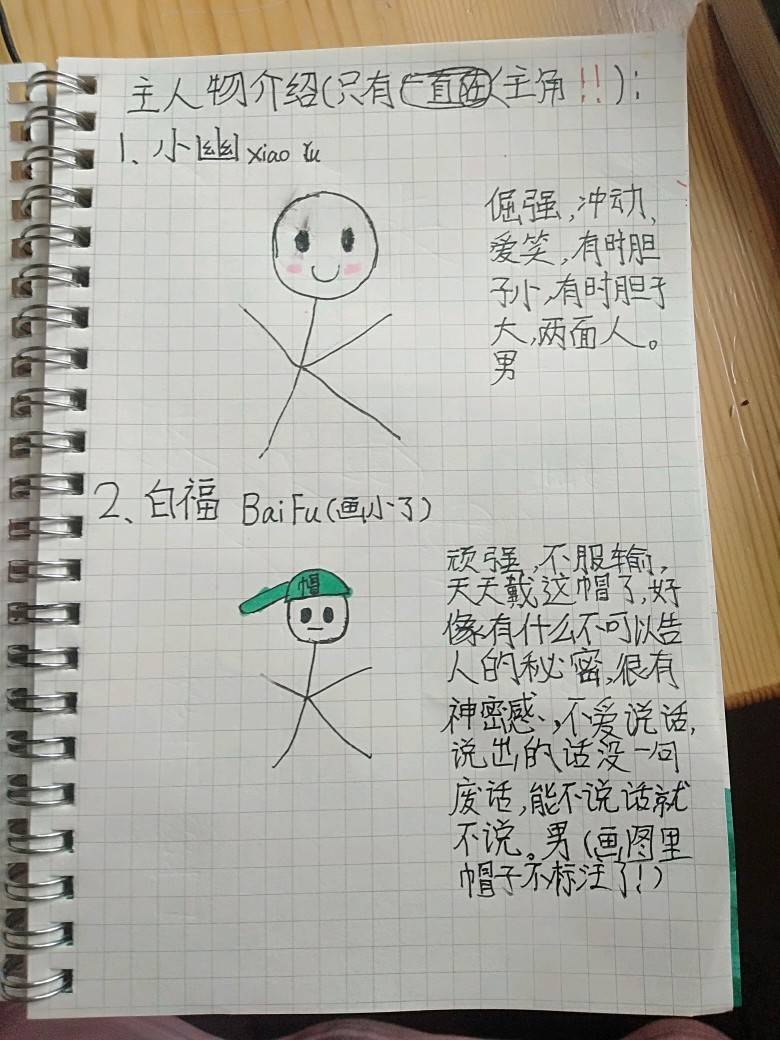 主人物介绍(只有一直在(主角!!):
1、小幽 xiao Yu
倔强,冲动、
爱笑,有时胆
子小,有时胆子
大,两面人。
男
2、白福 BaiFu(画小了)
帽
顽强,不服输,
天天戴这帽子,好
像有什么不可以告
人的秘密,很有
神密感、,不爱说话,
说出的话没一句
废话,能不说话就
不说。男(画图里
帽子不标注了!)